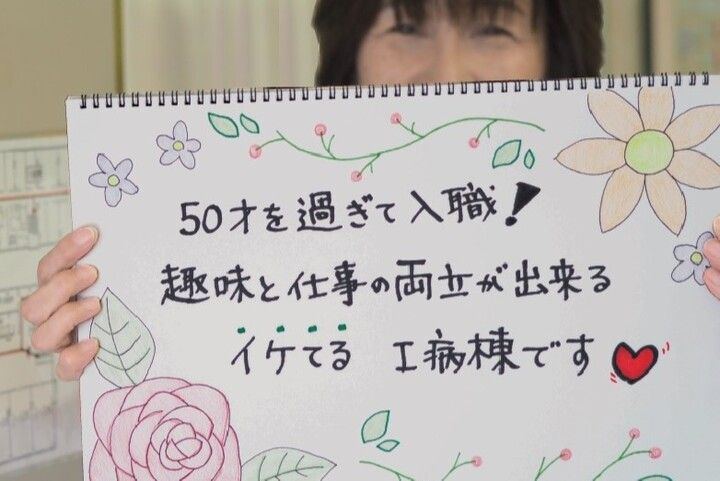 50才を過ぎて入職!
趣味と仕事の両立が出来る
イケてる I病棟です